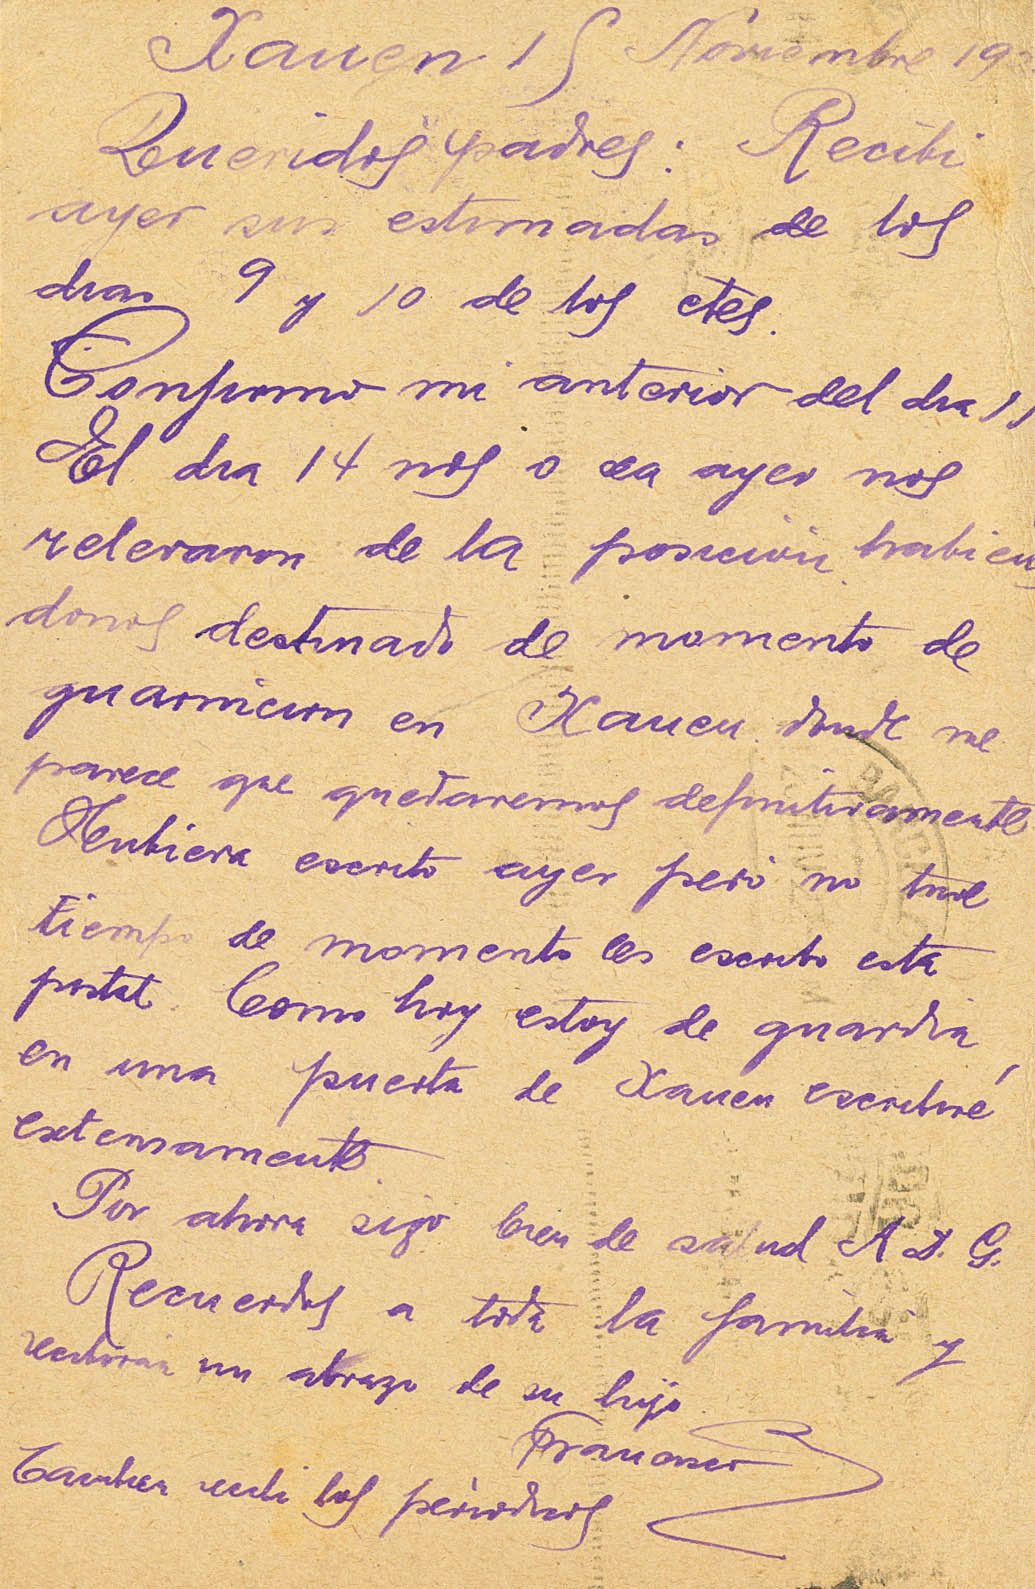 Xauen 15 Noviembre 19
Queridos padres: Recibi
ayer sus estimadas de los
dias 9 y 10 de los ctes.
Confirmo mi anterior del dia 11
El dia 14 nos o sea ayer nos
relevaron de la posicion habien
donos destinado de momento de
guarnicion en Xauen donde me
parece que quedaremos definitivamente
Hubiera escrito ayer pero no tuve
tiempo de momento les escribo esta
postal. Como hoy estoy de guardia
en una puerta de Xauen escribiré
extensamente
Por ahora sigo bien de salud A. D. G.
Recuerdos a toda la familia y
recibiran un abrazo de su hijo
Francisco
Tambien recibi los periodicos